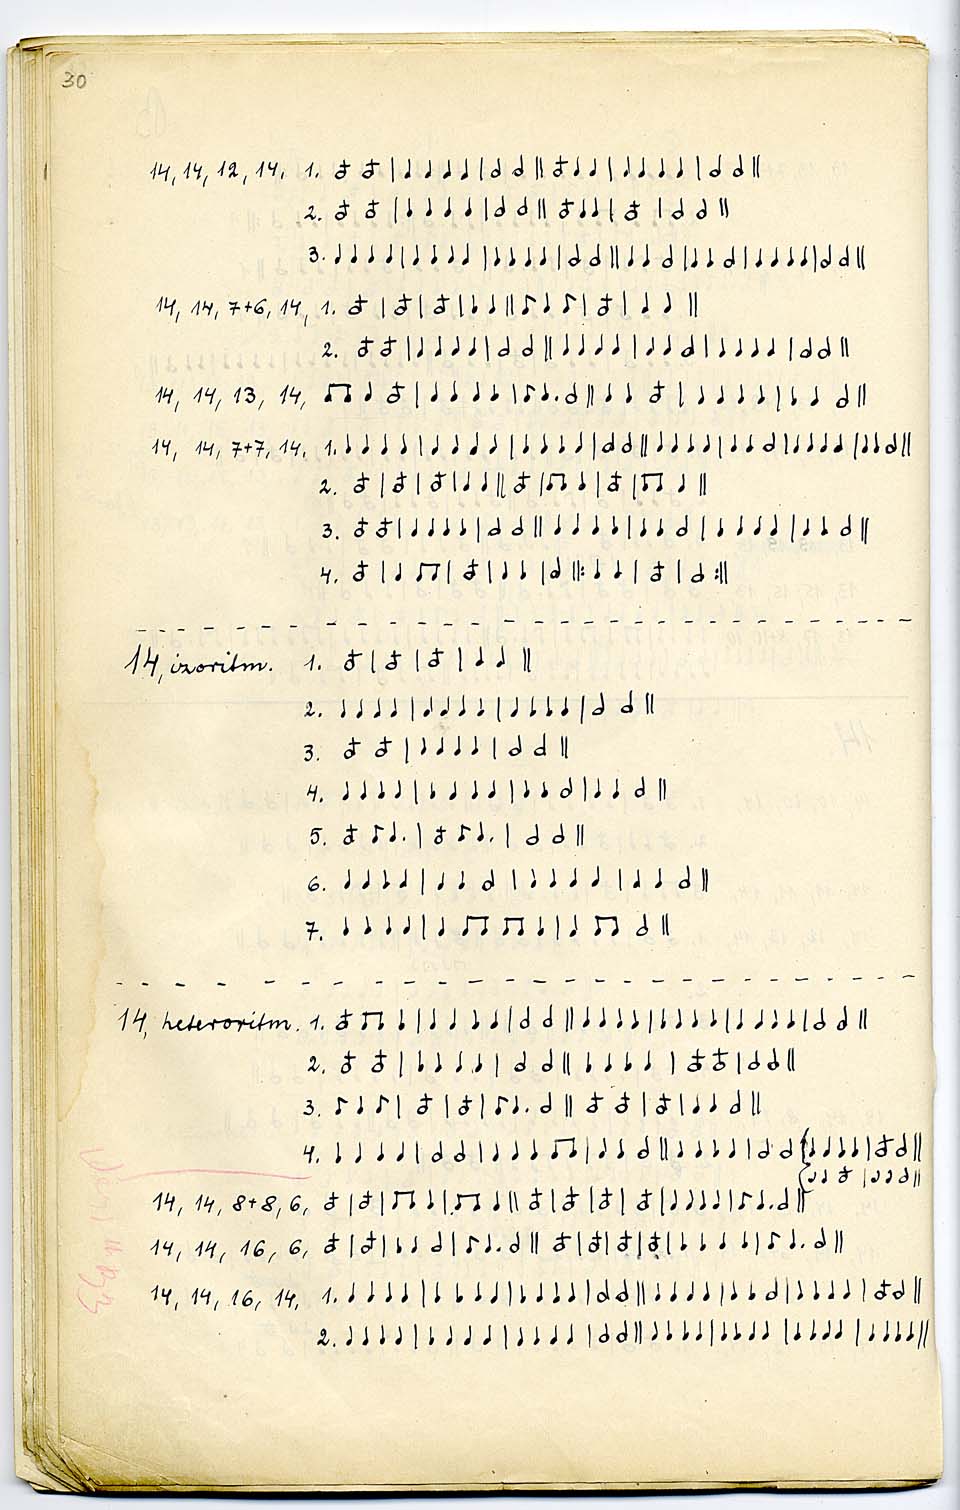 30
14, 14, 12, 14. 1.
2.
3.
14, 14, 7+6, 14, 1.
2.
14, 14, 13, 14,
14, 14, 7+7, 14. 1.
2.
3.
4.
14, izoritm. 1.
2.
3.
4.
5.
6.
7.
14, heteroritm. 1.
2.
3.
4.
14, 14, 8+8, 6,
14, 14, 16, 6,
14, 14, 16, 14, 1.
2.